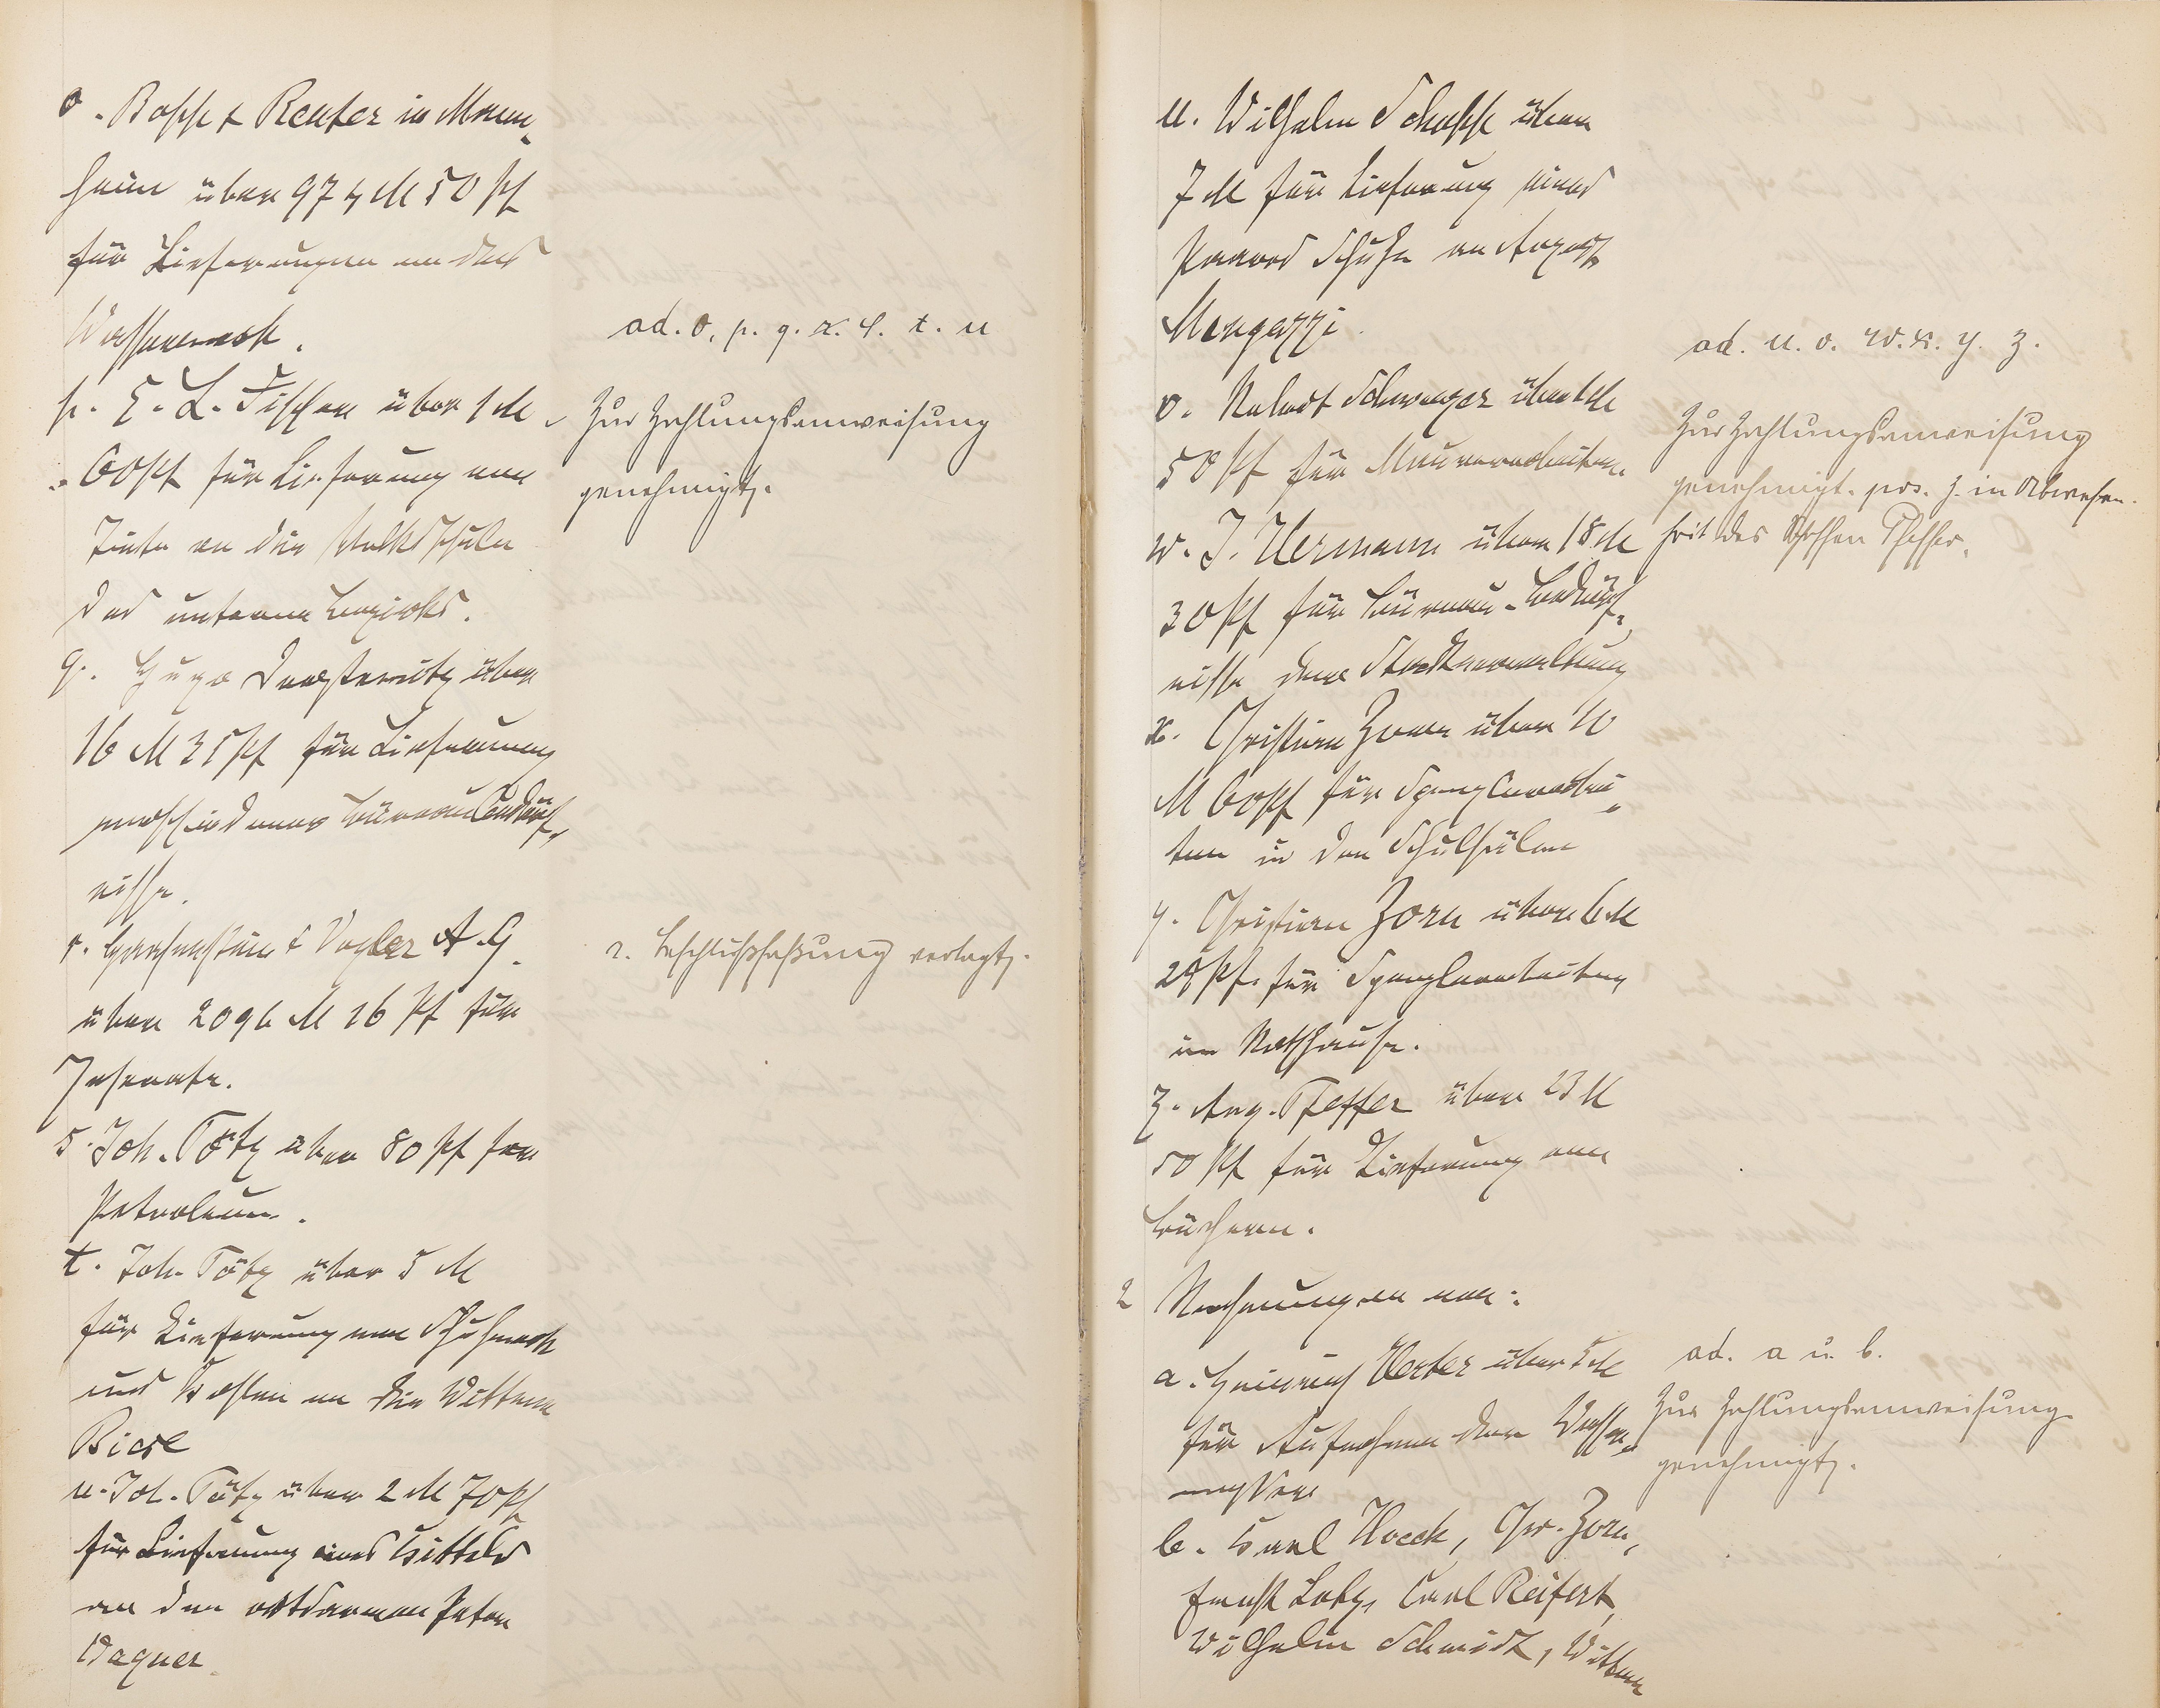 o. Bopp & Reuter in Mann-
heim über 974 M 50 Pf
für Lieferungen an das
Wasserwerk.
p. E. L. Fischer über 1 M
60 Pf für Lieferung von
Tinte an die Volksschule
des unteren Bezirks.
q. Hugo über
16 M 35 Pf für Lieferung
verschiedener Büreaubedürf-
nisse.
r. Haasenstein & Vogler A.G.
über 2096 M 26 Pf für
Inserate.
s. Joh. Tötz über 80 Pf für
Petroleum.
t. Joh. Tötz über 5 M
für Lieferung von Schuhwerk
und Kohlen an die Wittwe
u. Joh. Tötz über 2 M 70 Pf
für Lieferung eines Kittels
an den ortsarmen Peter
Wagner.
ad. o. p. q. r. s. t. u
Zur Zahlungsanweisung
genehmigt.
r. Beschlußfassung vertagt.
u. Wilhelm Schapp über
7 M für Lieferung eines
Paares Schuhe an August
Mengazzi.
v. über 1 M
50 Pf für Maurerarbeiten.
w. J. Hermann über 18 M
30 Pf für Büreau-Bedürf-
nisse der Stadtverwaltung
x. Christian Zorn über 10
M 60 Pf für Spenglerarbei-
ten in den Schulsälen
y. Christian Zorn über 6 M
28 Pf. für Spenglerarbeiten
im Rathhause.
z. Aug. Pfeffer über 23 M
50 Pf für Lieferung von
Büchern.
ad. u. v. w. x. y. z.
Zur Zahlungsanweisung
genehmigt. pos. z. in Abwesen-
heit des Schöffen Pfeffer.
2 Rechnungen von:
a. Heinrich Herber über 5 M
für Aufnahme der Wasser-
messer
b. Karl Hoeck, Chr. Zorn,
Ernst Lotz, Carl Reifert,
Wilhelm Schmidt, Wittwe
ad. a u. b.
Zur Zahlungsanweisung
genehmigt.